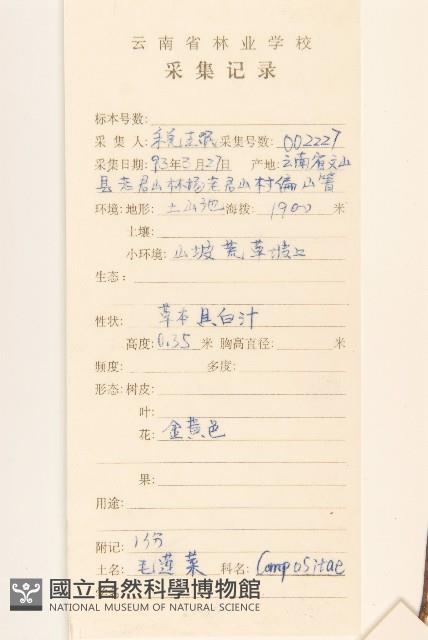 云南省林业学校
采集记录
标本号数:
采集人: 税玉民 采集号数: 002227
采集日期: 93年3月27日 产地: 云南省文山
县老君山林场老君山村偏山箐
环境: 地形: 土山地 海拨: 1900 米
土壤:
小环境: 山坡荒草坡上
生态:
性状: 草本具白汁
高度: 0.35 米 胸高直径: 米
频度: 多度:
形态: 树皮:
叶:
花: 金黄色
果:
用途:
附记: 1份
土名: 毛莲菜 科名: Compositae
國立自然科學博物館
NATIONAL MUSEUM OF NATURAL SCIENCE